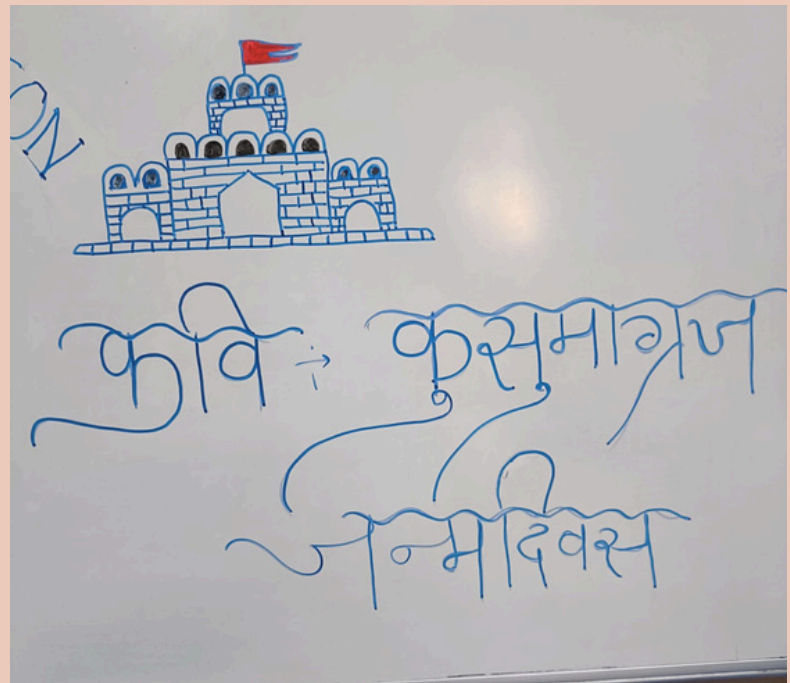 ON
कवि → कुसुमाग्रज
जन्मदिवस